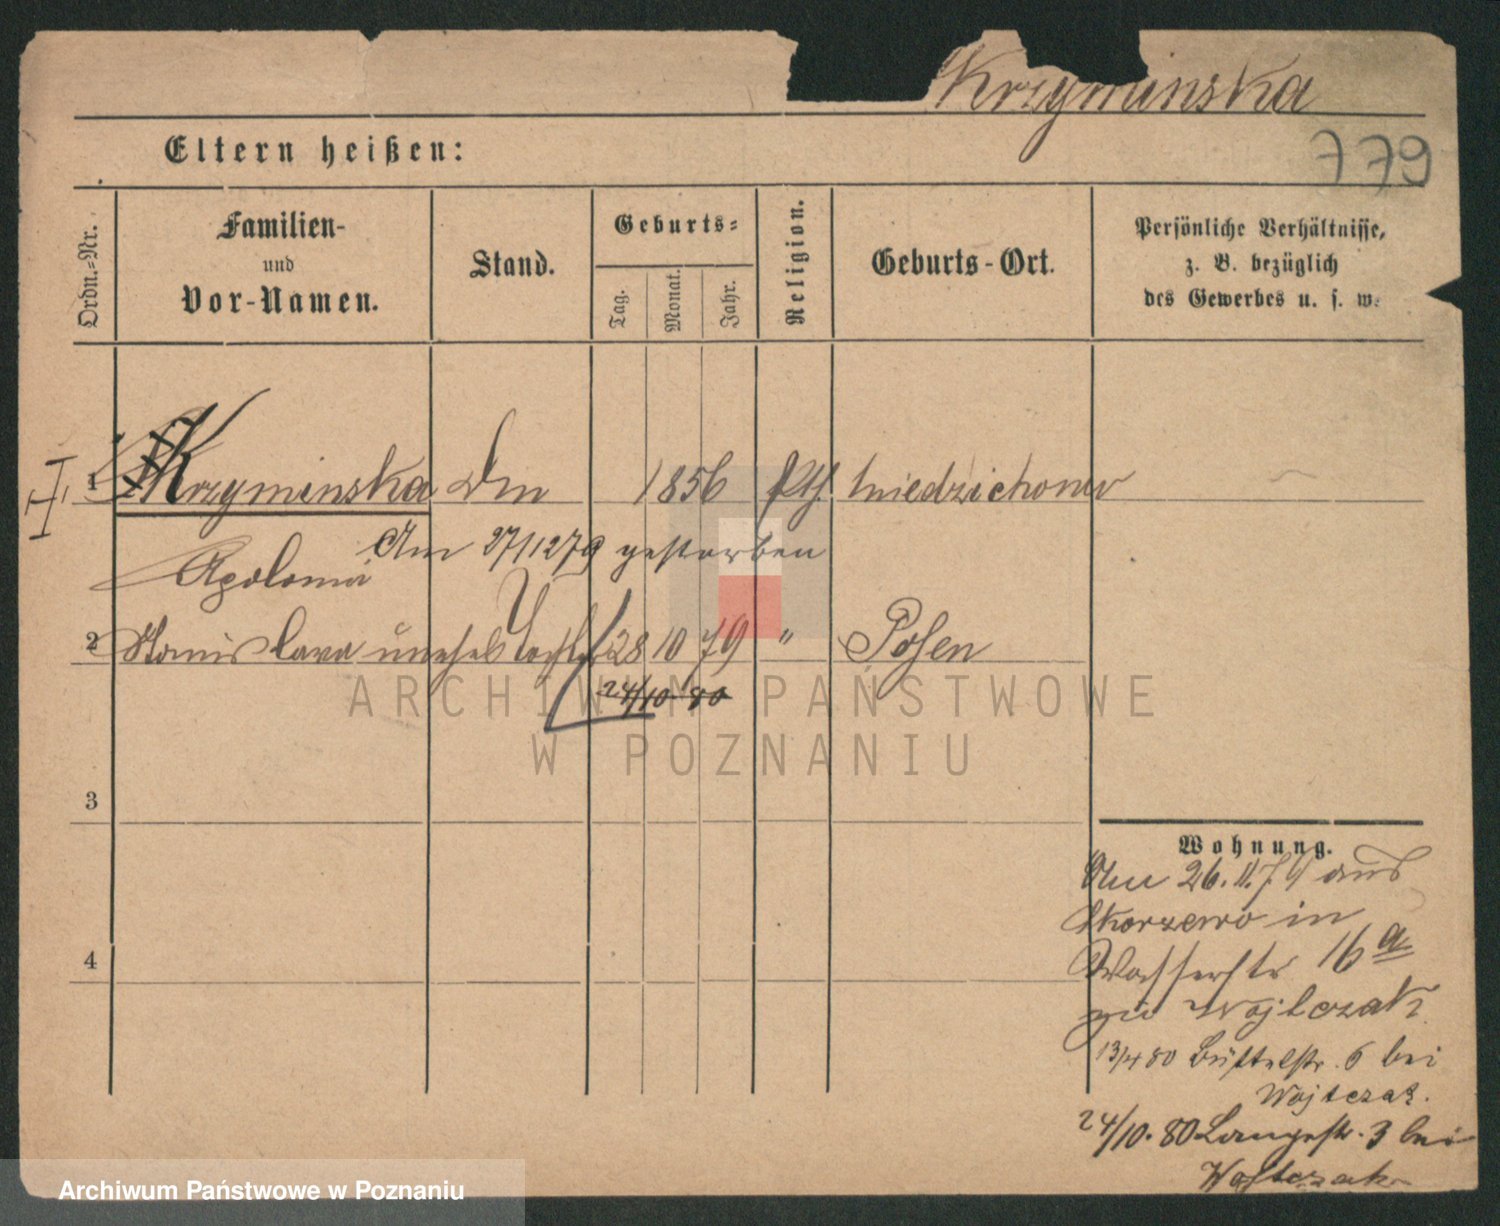 Krzyminska
779
Eltern heißen:
Ordn.-Nr.
Familien-
und
Vor-Namen.
Stand.
Geburts-
Tag.
Monat.
Jahr.
Religion.
Geburts-Ort.
Persönliche Verhältnisse,
z. B. bezüglich
des Gewerbes u. s. w.
1 Krzyminska 1856 kth Niedzichowo
Am 27/12 79 gestorben
Apolonia
2 Stanislava unehel Tochter 28 10 79 " Posen
24/10 80
ARCHIWUM PAŃSTWOWE
W POZNANIU
3
4
Wohnung.
Am 26.11.79 aus
Skorzewo in
Wasserstr 16 a
zu Wojtczak
13/4 80 Büttelstr. 6 bei
Wojtczak.
24/10. 80 Langestr. 3 bei
Wojtczak
Archiwum Państwowe w Poznaniu